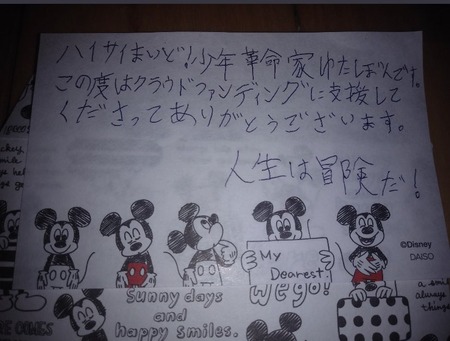 ハイサイまいど!少年革命家ゆたぼんです。
この度はクラウドファンディングに支援して
くださってありがとうございます。
人生は冒険だ!
©Disney
DAISO
My
Dearest.
We go!
a smile
always
things
Sunny days
and
happy smiles.